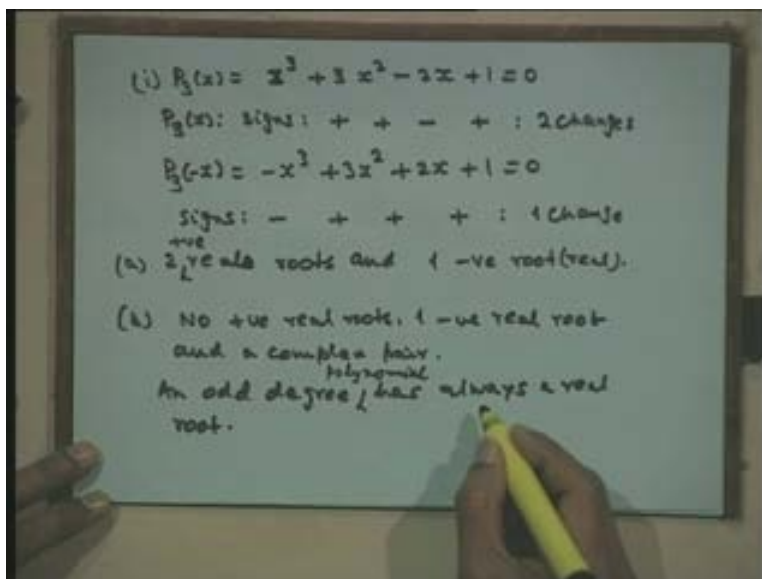 (i) P₃(x) = x³ + 3x² - 2x + 1 = 0
P₃(x): signs: + + - + : 2 changes
P₃(-x) = -x³ + 3x² + 2x + 1 = 0
signs: - + + + : 1 change
(a) 2 +ve reals roots and 1 -ve root (real).
(b) No +ve real roots, 1 -ve real root
and a complex pair.
An odd degree polynomial has always a real
root.